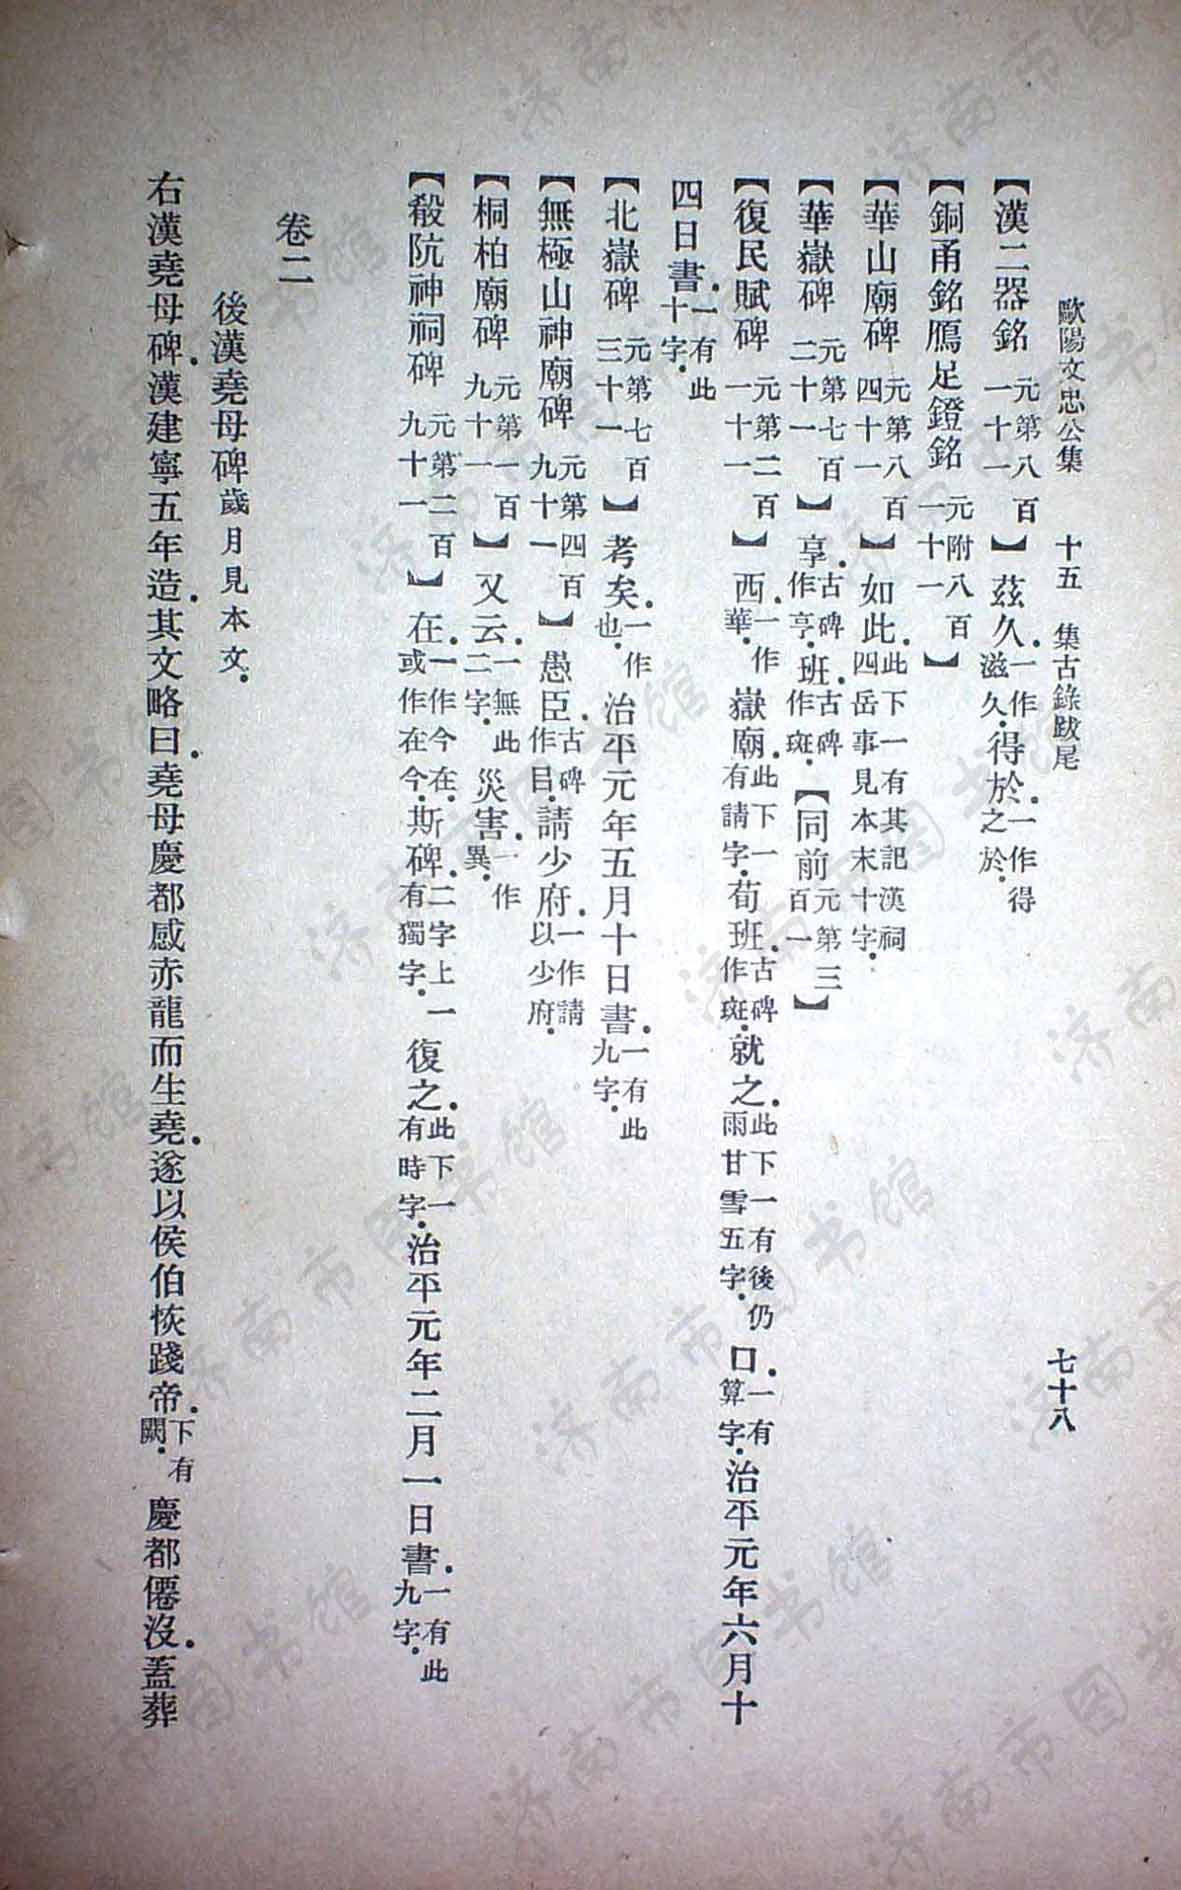 歐陽文忠公集　十五　集古錄跋尾　七十八
【漢二器銘元第八百一十一】茲久.一作滋久.得於.一作得之於.
【銅甬銘鴈足鐙銘元附八百一十一】
【華山廟碑元第八百四十一】如此.此下一有其記漢祠四岳事見本末十字.
【華嶽碑元第七百二十一】享.古碑作亨.班.古碑作斑.【同前元第三百一】
【復民賦碑元第二百一十一】西.一作華.嶽廟.此下一有請字.荀班.古碑作斑.就之.此下一有後仍雨甘雪五字.口.一有算字.治平元年六月十
四日書.一有此十字.
【北嶽碑元第七百三十一】考矣.一作也.治平元年五月十日書.一有此九字.
【無極山神廟碑元第四百九十一】愚臣.古碑作目.請少府.一作請以少府.
【桐柏廟碑元第一百九十一】又云.一無此二字.災害.一作異.
【殽阬神祠碑元第二百九十一】在.一作今在.或作在今.斯碑.二字上一有獨字.復之.此下一有時字.治平元年二月一日書.一有此九字.
卷二
後漢堯母碑歲月見本文.
右漢堯母碑.漢建寧五年造.其文略曰.堯母慶都感赤龍而生堯.遂以侯伯恢踐帝.下有闕.慶都僊沒.蓋葬